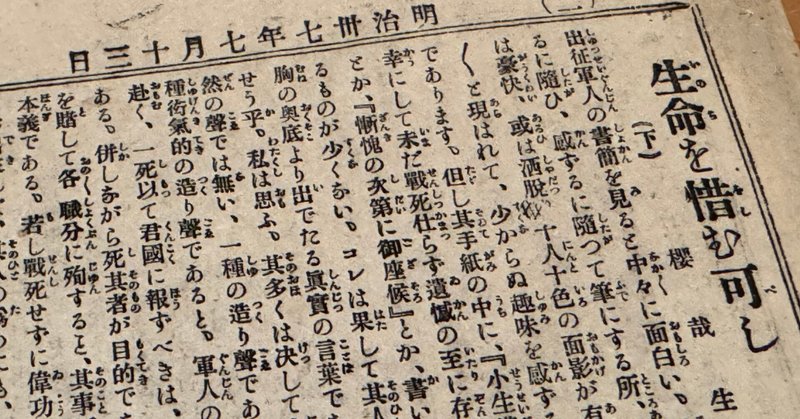 明治卅七年七月十三日
生命を惜む可し
(下)
櫻哉生
出征軍人の書簡を見ると中々に面白い。
るに隨ひ、感ずるに隨つて筆にする所、
は豪快、或は洒脱、十人十色の面影が有
くと現はれて、少からぬ趣味を感ず
であります。但し其手紙の中に、『小生
幸にして未だ戰死仕らず遺憾の至に存
とか、『慚愧の次第に御座候』とか、書い
るものが少くない。コレは果して其人
胸の奥底より出でたる眞實の言葉で
せう乎。私は思ふ、其多くは決して
然の聲では無い、一種の造り聲であ
種衒氣的の造り聲であると、軍人の
赴く、一死以て君國に報ずべきは、
ある。併しながら死其者が目的で
を賭して各職分に殉ずること、其事
本義である。若し戰死せずに偉功